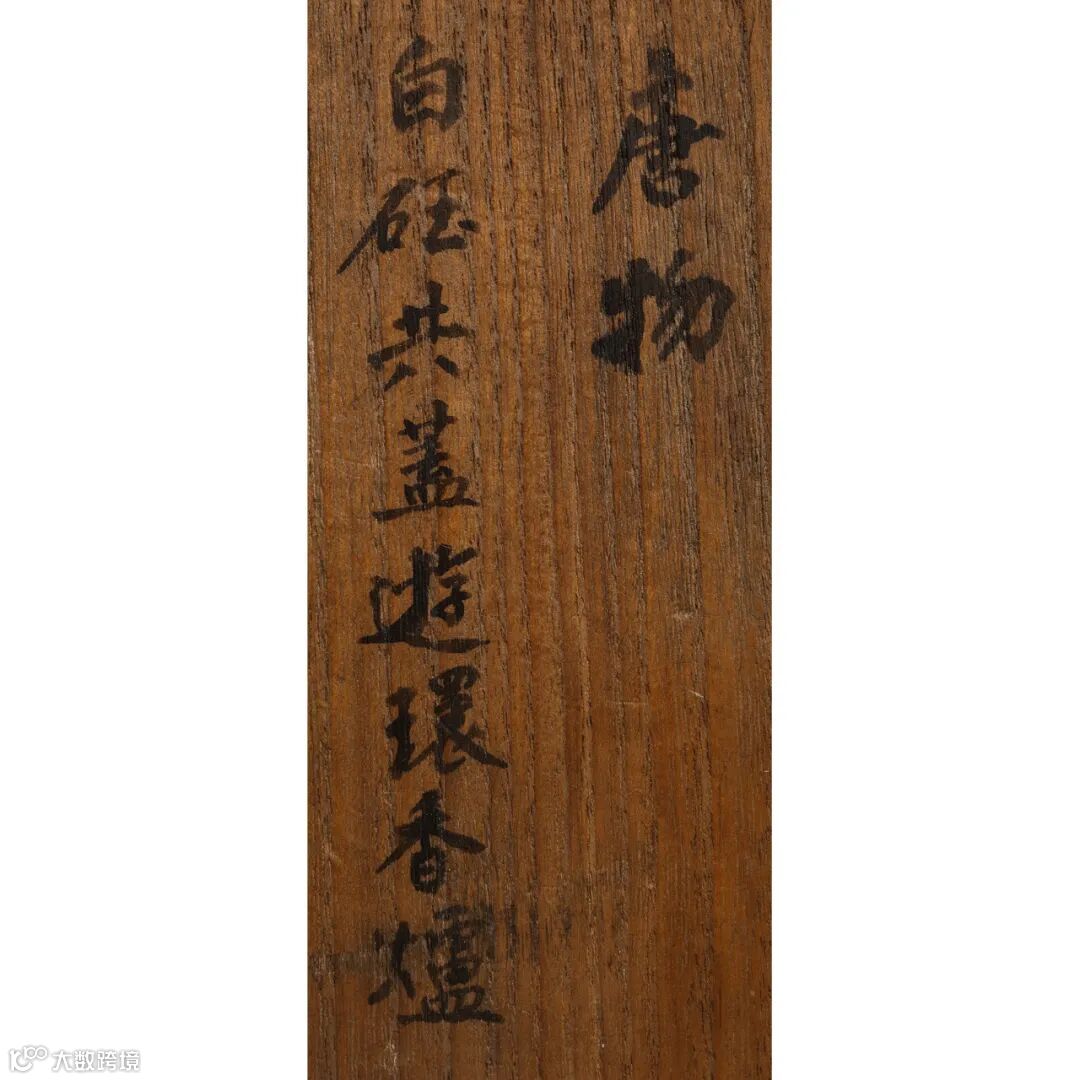 唐物
白砡共蓋遊環香爐
大数跨境